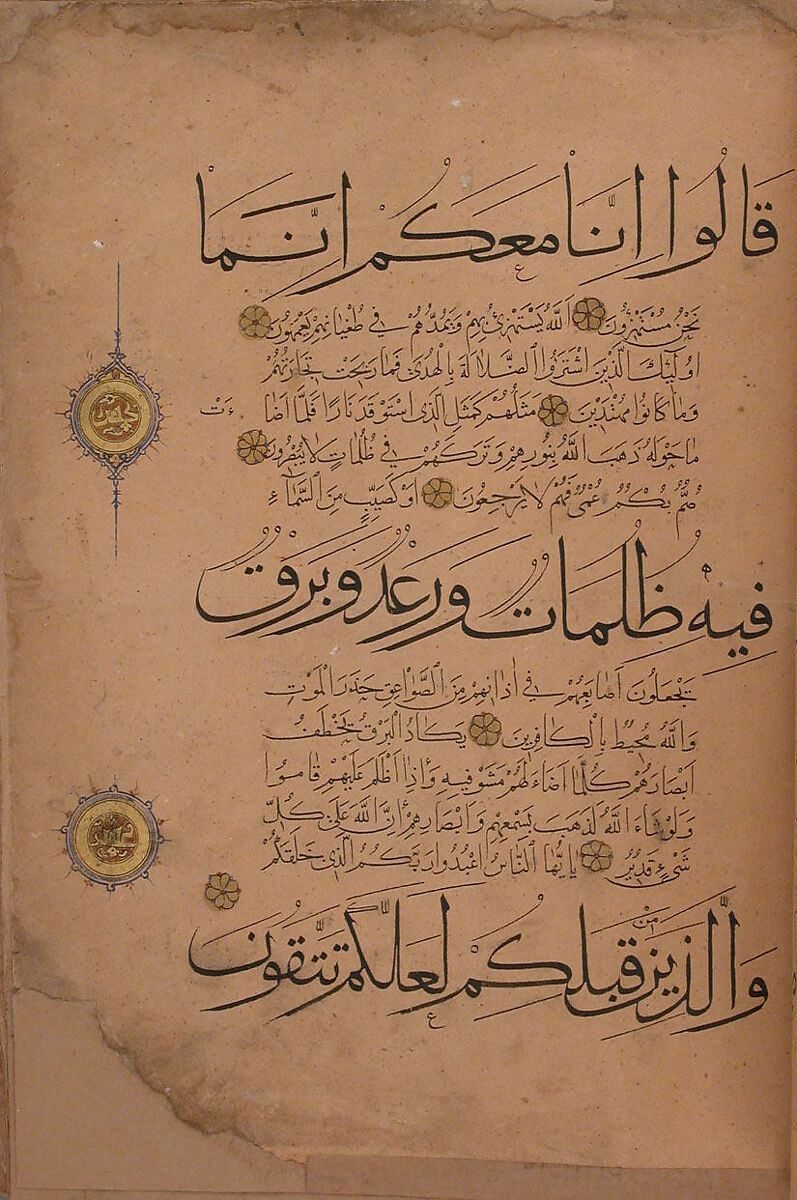 قَالُوا إِنَّا مَعَكُمْ إِنَّمَا
نَحْنُ مُسْتَهْزِؤُنَ اَللّٰهُ يَسْتَهْزِئُ بِهِمْ وَيَمُدُّهُمْ فِي طُغْيَانِهِمْ يَعْمَهُونَ
اُولٰئِكَ الَّذِينَ اشْتَرَوُا الضَّلَالَةَ بِالْهُدٰى فَمَا رَبِحَتْ تِجَارَتُهُمْ
وَمَا كَانُوا مُهْتَدِينَ مَثَلُهُمْ كَمَثَلِ الَّذِي اسْتَوْقَدَ نَارًا فَلَمَّا اَضَا
ءَتْ
مَا حَوْلَهُ ذَهَبَ اللّٰهُ بِنُورِهِمْ وَتَرَكَهُمْ فِي ظُلُمَاتٍ لَا يُبْصِرُونَ
صُمٌّ بُكْمٌ عُمْيٌ فَهُمْ لَا يَرْجِعُونَ اَوْ كَصَيِّبٍ مِنَ السَّمَآءِ
فِيهِ ظُلُمَاتٌ وَرَعْدٌ وَبَرْقٌ
يَجْعَلُونَ اَصَابِعَهُمْ فِي اٰذَانِهِمْ مِنَ الصَّوَاعِقِ حَذَرَ الْمَوْتِ
وَاللّٰهُ مُحِيطٌ بِالْكَافِرِينَ يَكَادُ الْبَرْقُ يَخْطَفُ
اَبْصَارَهُمْ كُلَّمَا اَضَاءَ لَهُمْ مَشَوْا فِيهِ وَإِذَا اَظْلَمَ عَلَيْهِمْ قَامُوا
وَلَوْ شَاءَ اللّٰهُ لَذَهَبَ بِسَمْعِهِمْ وَاَبْصَارِهِمْ إِنَّ اللّٰهَ عَلٰى كُلِّ
شَيْءٍ قَدِيرٌ يَا يُّهَا النَّاسُ اعْبُدُوا رَبَّكُمُ الَّذِي خَلَقَكُمْ
وَالَّذِينَ مِنْ قَبْلِكُمْ لَعَلَّكُمْ تَتَّقُونَ